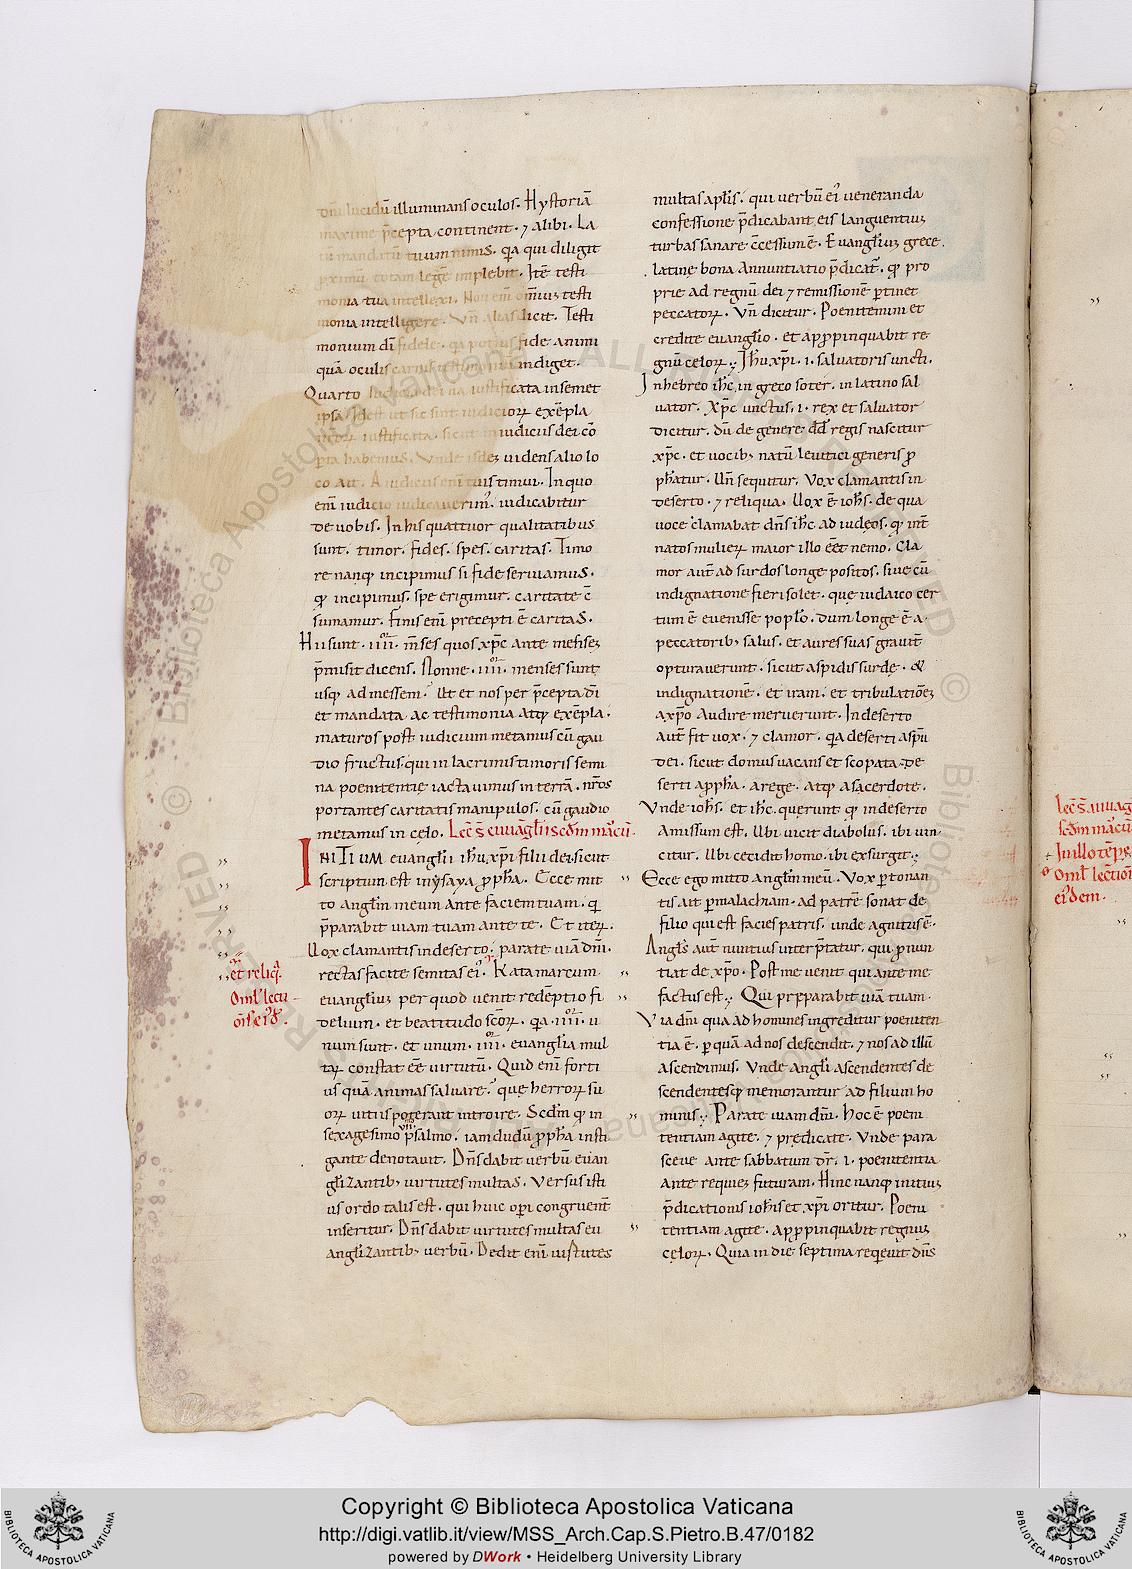 dñi lucidũ illuminans oculos. Hystoriã
maxime p̃cepta continent. ⁊ alibi. La
tũ mandatũ tuum nimis. q̃a qui diligit
proximũ totam legẽ implebit. Itẽ testi
monia tua intellexi. Non eñi omnis testi
monia intelligere. Vñ alias dicit. Testi
monium dñi fidele. q̃a potius fide animi
quã oculis carnis testimonium indiget.
Quarto Iudicia dei uera iustificata in semet
ipsa. Idest ut sic sint iudicioꝝ exẽpla
iustificata. sicut in iudiciis dei cõ
perta habemus. Vnde isdẽ uidens alio lo
co ait. A iudiciis eñi tuis timui. In quo
eñi iudicio iudicaueritis. iudicabitur
de uobis. In his quattuor qualitatibus
sunt. timor. fides. spes. caritas. Timo
re nanq; incipimus si fide seruiamus.
q̃ incipimus. spe erigimur. caritate cõ
sumamur. Finis eñi precepti ẽ caritas.
Hii sunt .iiii. m̃ses quos xp̃c ante messes
p̃misit dicens. Nonne .iiii. menses sunt
usq; ad messem. Vt et nos per p̃cepta d̃i
et mandata ac testimonia atq; exẽpla.
maturos post iudicium metamus cũ gau
dio fructus. qui in lacrimis timoris semi
na poenitentie iactauimus in terrã. nr̃os
portantes caritatis manipulos. cũ gaudio
metamus in cęlo. Lec̃ s̃ euuãgl̃ii scd̃m marcũ.
INITIUM euangl̃ii ih̃u xp̃i filii dei sicut
scriptum est in ysaya pp̃ha. Ecce mit
to angl̃m meum ante faciem tuam. q̃
p̃parabit uiam tuam ante te. Et iteꝝ.
Uox clamantis in deserto. parate uiã dñi.
rectas facite semitas ei'. Kata marcum
et reliq̃.
Oml̃ lecti
onis eiusd̃.
euangl̃ius per quod uenit redẽptio fi
delium. et beatitudo sc̃oꝝ. q̃a .iiii. u
num sunt. et unum .iiii. euangl̃ia mul
taꝝ constat ẽe uirtutũ. Quid eñi forti
us quã animas saluare. quę herroꝝ su
oꝝ uitiis potierant introire. Scd̃m q̃ in
sexagesimo vii psalmo. iamdudũ pp̃ha insti
gante denotauit. Dñs dabit uerbũ euan
gl̃izantib; uirtutes multas. Versus isti
us ordo talis est. qui huic opi congruent̃
inseritur. Dñs dabit uirtutes multas eu
angl̃izantib; uerbũ. Dedit eñi uirtutes
multas apl̃is. qui uerbũ ei' ueneranda
confessione p̃dicabant. eis languentium
turbas sanare c̃cessum ẽ. Euangl̃ium grece.
latine bona annuntiatio p̃dicat̃. q̃ pro
prie ad regnũ dei ⁊ remissionẽ p̃tinet
peccatoꝝ. Vñ dicitur. Poenitemini et
credite euangl̃io. et appropinquabit re
gnũ celoꝝ. Ih̃u xp̃i. i. saluatoris uncti.
In hebreo ih̃c. in greco soter. in latino sal
uator. Xp̃c unctus. i. rex et saluator
dicitur. dũ de genere dd̃ regis nascitur
xp̃c. et uocib; natũ leuitici generis p̃
ph̃atur. Uñ sequitur. Vox clamantis in
deserto. ⁊ reliqua. Uox ẽ ioh̃s. de qua
uoce clamabat dñs ih̃c ad iudęos. q̃ int̃
natos mulieꝝ maior illo ẽet nemo. Cla
mor aut̃ ad surdos longe positos. siue cũ
indignatione fieri solet. quę iudaico cer
tum ẽ euenisse popl̃o. dum longe ẽ a
peccatorib; salus. et aures suas grauit̃
opturauerunt. sicut aspidis surdę. &
indignationẽ. et iram. et tribulationẽ
a xp̃o audire meruerunt. In deserto
aut̃ fit uox. ⁊ clamor. q̃a deserti a sp̃u
dei. sicut domus uacans et scopata. de
serti a pp̃ha. a rege. atq; a sacerdote.
Vnde ioh̃s. et ih̃c. querunt q̃ in deserto
amissum est. Ubi uicit diabolus. ibi uin
citur. Ubi cecidit homo. ibi exsurgit.
Ecce ego mitto angl̃m meũ. Vox p̃tonan
tis ait p̃ malachiam. ad patrẽ sonat de
filio qui est facies patris. unde agnitus ẽ.
Angl̃s aut̃ nuntius interp̃tatur. qui p̃nun
tiat de xp̃o. Post me uenit qui ante me
factus est. Qui pręparabit uiã tuam.
Via dñi qua ad homines ingreditur poeniten
tia ẽ. p̃ quã ad nos descendit. ⁊ nos ad illũ
ascendimus. Vnde angl̃i ascendentes de
scendentesq; memorantur ad filium ho
minis. Parate uiam dñi. Hoc ẽ poeni
tentiam agite. ⁊ prędicate. Vnde para
sceue ante sabbatum dr̃. i. poenitentia
ante requiẽ futuram. Hinc nanq; initium
p̃dicationis ioh̃is et xp̃i oritur. Poeni
tentiam agite. appropinquabit regnum
cęloꝝ. Quia in die septima requieuit dñs
Lec̃ s̃ euuãg
scd̃m marcũ
In illo tẽpr̃
Oml̃ lectioñ
eiusdem.
Copyright © Biblioteca Apostolica Vaticana
http://digi.vatlib.it/view/MSS_Arch.Cap.S.Pietro.B.47/0182
powered by DWork • Heidelberg University Library
BIBLIOTECA APOSTOLICA VATICANA
BIBLIOTECA APOSTOLICA VATICANA